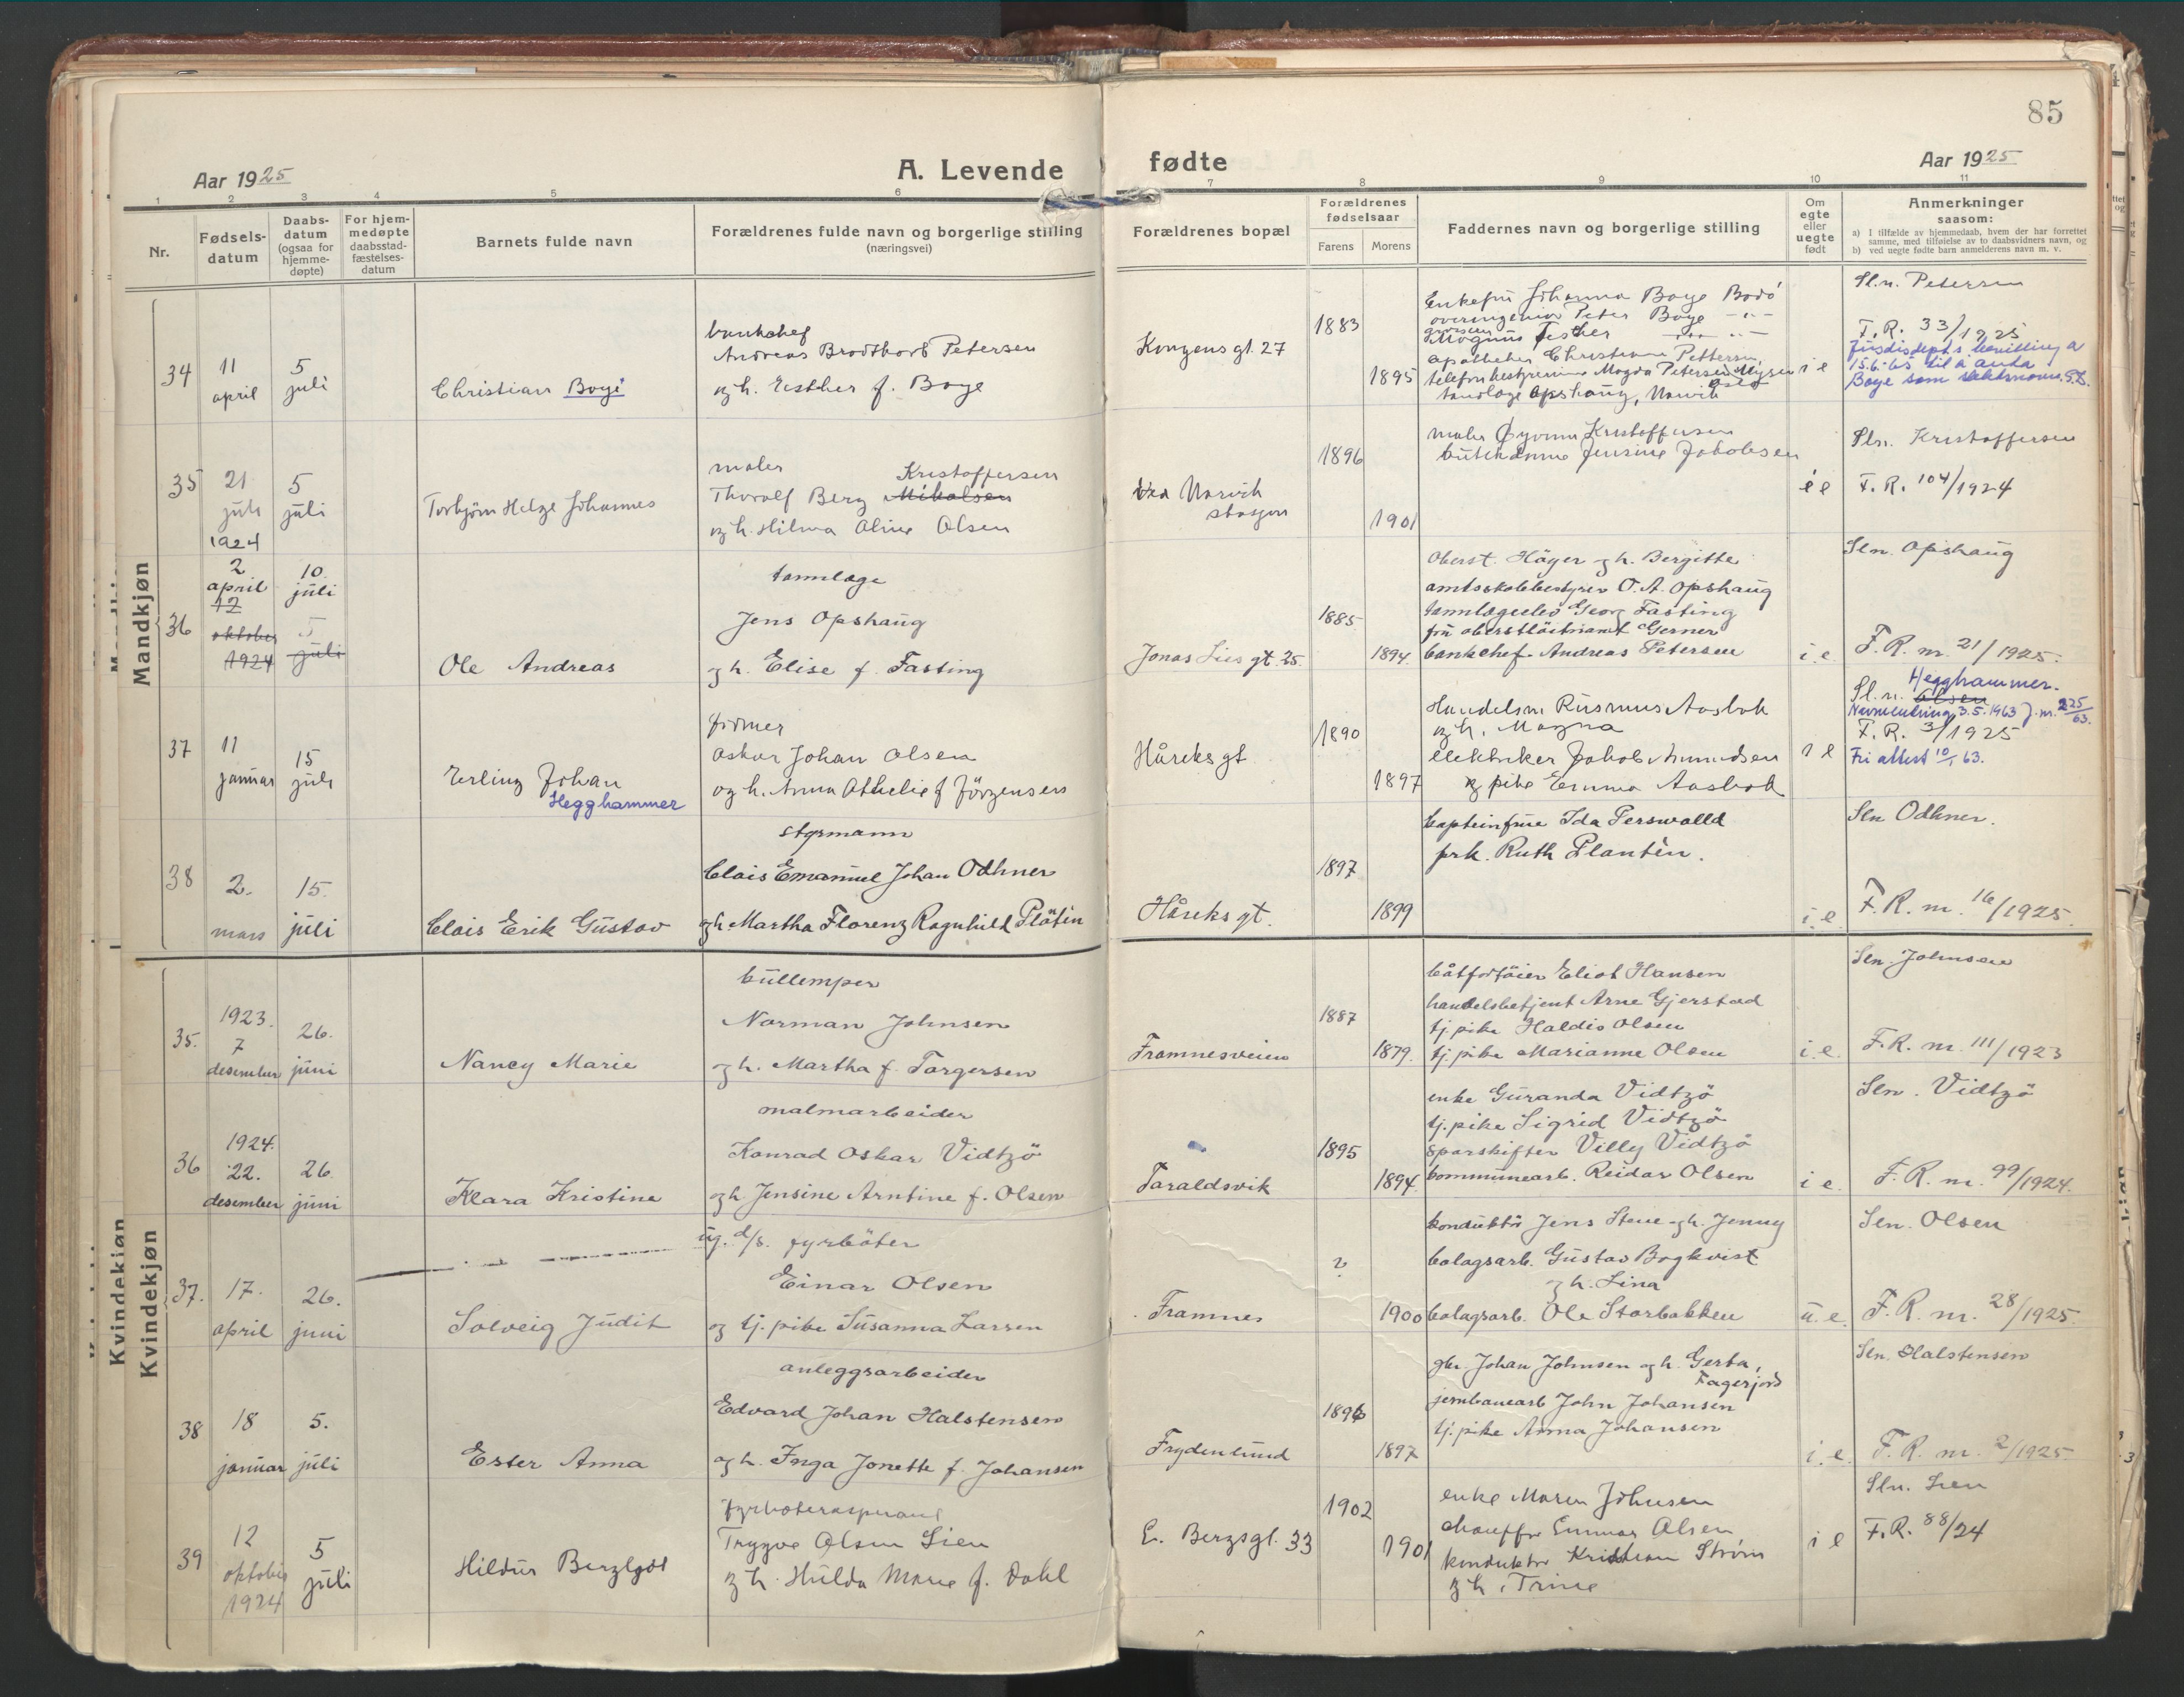 85
Aar 1925
A. Levende fødte
Aar 1925
1 2 3 4 5 6 7 8 9 10 11
Nr.
Fødsels-
datum
Daabs-
datum
(ogsaa for
hjemme-
døpte)
For hjem-
medøpte
daabsstad-
fæstelses-
datum
Barnets fulde navn
Forældrenes fulde navn og borgerlige stilling
(næringsvei)
Forældrenes bopæl
Forældrenes
fødselsaar
Farens
Morens
Faddernes navn og borgerlige stilling
Om
egte
eller
uegte
født
Anmerkninger
saasom:
a) I tilfælde av hjemmedaab, hvem der har forrettet
samme, med tilføielse av to daabsvidners navn, og
b) ved uegte fødte barn anmelderens navn m. v.
Mandkjøn
34
11
april
5
juli
Christian Boye
bankchef
Andreas Brodtkorb Petersen
og h. Esther f. Boye
Kongens gt. 27
1883
1895
Enkefru Johanna Boye Bodö
overingeniør Peter Boye -"-
Magnus Esther -"-
apotheker Christian Pettersen,
telefonbestyrerinne Magda Petersen Mysen
tandlæge Opshaug, Narvik
i e
Sl.n. Petersen
F. R. 33/1925
Jusdisdepts bevilling a
15.6-65 til å anta
Boye som slektsnavn. S.B.
35
21
juli
1924
5
juli
Torbjörn Helge Johannes
maler Kristoffersen
Thoralf Berg Mikalsen
og h. Hilma Oline Olsen
ved Narvik
stasjon
1896
1901
maler Øyvinn Kristoffersen
butikdamme Jensine Jakobsen
i e
Sln. Kristoffersen
F. R. 104/1924
36
2
april
12
oktober
1924
10.
juli
5
juli
Ole Andreas
tannlæge
Jens Opshaug
og h. Elise f. Fasting
Jonas Lies gt. 25.
1885
1894.
Oberst. Häger og h. Bergitte
amtsskolebestyrer O. A. Opshaug
tannlægeelev Georg Fasting
fru oberstlöitnant Gerner
bankchef Andreas Petersen
i. e.
Sln. Opshaug
F. R. nr. 21/1925.
37
11
januar
15
juli
Erling Johan
Hegghammer
former
Oskar Johan Olsen
og h. Anna Athelie f Jörgensen
Håreks gt
1890
1897
Handelsm Rasmus Aasbak
og h. Magna
elektriker Jakob Amundsen
og pike Emma Aasbak
i e
Hegghammer.
Sl. n. Olsen
Navneendring 3.5.1963 J. nr. 225/63.
F. R. 3/1925
Fri attest 10/1 63.
38
2.
mars
15.
juli
Clais Erik Gustav
styrmann
Clais Emanuel Johan Odhner
og h. Martha Florenz Ragnhild Plätin
Håreks gt.
1897
1899
kapteinfrue Ida Perswalld
frk. Ruth Plantèn.
i. e.
Sln Odhner.
F. R. nr. 16/1925.
Kvindekjøn
Kvindekjøn
35.
1923.
7
desember
26.
juni
Nancy Marie
bullemper
Norman Johnsen
og h. Martha f. Torgersen
Framnesveien
1887
1879.
båtfortöier Eliot Hansen
handelsbetjent Arne Gjerstad
tj. pike Haldis Olsen
tj. pike Marianne Olsen
i. e.
Sln. Johnsen
F. R. nr. 111/1923
36
1924.
22.
desember
26.
juni
Klara Kristine
malmarbeider
Konrad Oskar Vidtzö
og h. Jensine Arntine f. Olsen
Taraldsvik
1895
1894.
enke Guranda Vidtzö
tj. pike Sigrid Vidtzö
sporskifter Villy Vidtzö
kommunearb. Reidar Olsen
i e.
Sln. Vidtzö
F. R. nr. 99/1924.
37.
17.
april
26.
juni
Solveig Judit
ug. d/s. fyrböter
Einar Olsen
og tj. pike Susanna Larsen
Framnes
?
1900
konduktör Jens Stene og h. Jenny
bolagsarb. Gustav Bogkvist
og h. Lina
bolagsarb. Ole Storbakken
u. e.
Sln. Olsen
F. R. nr. 28/1925.
38
18
januar
5.
juli
Ester Anna
anleggsarbeider
Edvard Johan Halstensen
og h. Inga Jonette f. Johansen
Frydenlund
1896
1897
gbr. Johan Johnsen og h. Gerta,
Fagerjord
jernbanearb John Johansen
tj. pike Anna Johansen
i. e.
Sln. Halstensen
F. R. nr. 2/1925.
39
12
oktober
1924
5
juli
Hildur Berglyot
fyrböteraspirant
Trygve Olsen Lien
og h. Hulda Marie f. Dahl
E. Bergsgt. 33
1902
1901
enke Maren Johnsen
chauffør Gunnar Olsen
konduktør Kristian Ström
og h. Trine
i e
Sln. Lien
F. R. 88/24